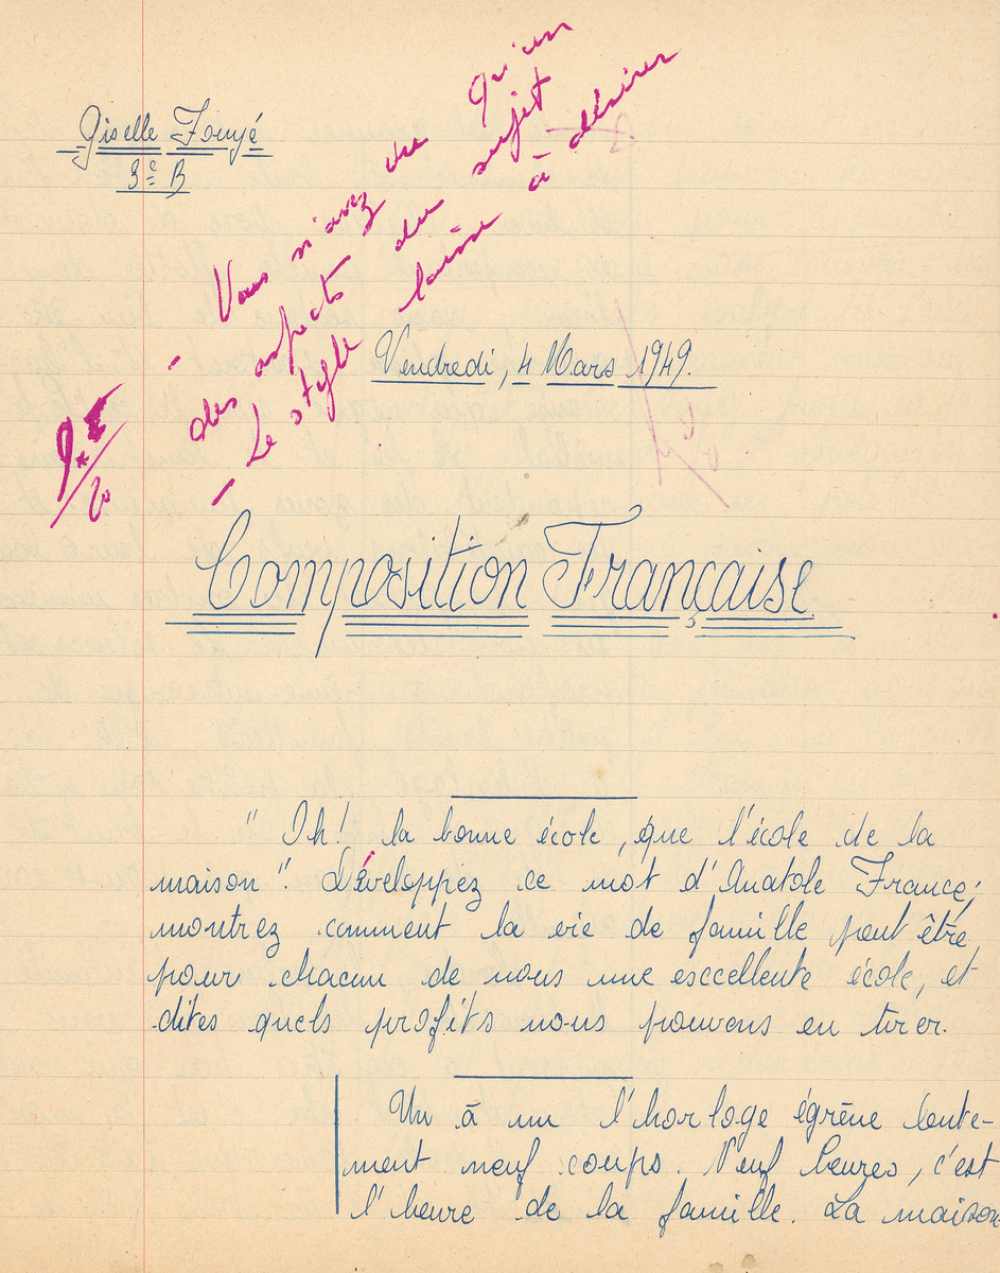 Giselle Fougé
3e B
- Vous n'avez vu qu'un
des aspects du sujet
- Le style laisse à désirer
20
Vendredi, 4 Mars 1949.
Composition Française
" Oh! la bonne école, que l'école de la
maison". Développez ce mot d'Anatole France;
montrez comment la vie de famille peut être
pour chacun de nous une esccellente école, et
dites quels profits nous pouvons en tirer.
Un à un l'horloge égrène lente-
ment neuf coups. Neuf heures, c'est
l'heure de la famille. La maison